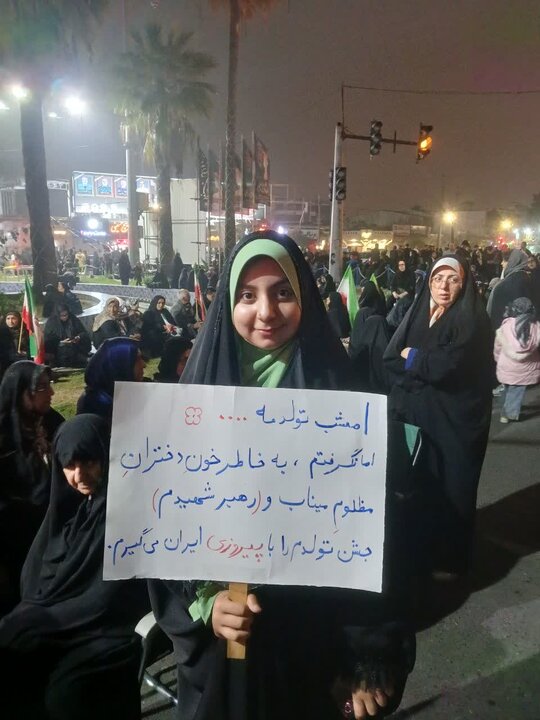 امشب تولدمه ....
اما نگرفتم ، به خاطر خونِ دخترانِ
مظلومِ میناب و (رهبر شهیدم)
جشن تولدم را با پیروزی ایران می‌گیرم.